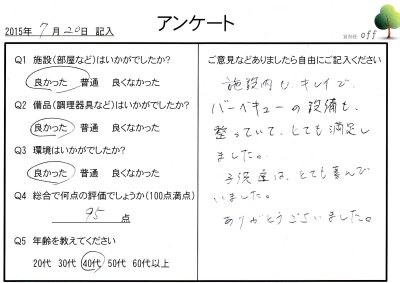 アンケート
2015年 7月20日 記入
貸別荘 off
Q1 施設(部屋など)はいかがでしたか?
良かった 普通 良くなかった
Q2 備品(調理器具など)はいかがでしたか?
良かった 普通 良くなかった
Q3 環境はいかがでしたか?
良かった 普通 良くなかった
Q4 総合で何点の評価でしょうか(100点満点)
95 点
Q5 年齢を教えてください
20代 30代 40代 50代 60代以上
ご意見などありましたら自由にご記入ください
施設内も、キレイで、
バーベキューの設備も、
整っていて、とても満足し
ました。
子供達は、とても喜んで
いました。
ありがとうございました。